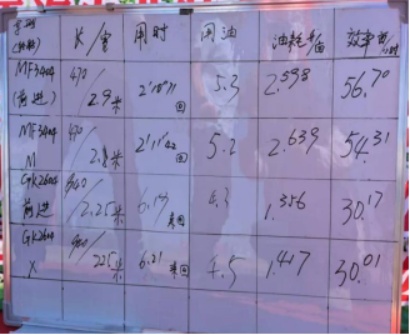 K/宽 用时 用油 油耗 效率亩/小时
MF3404
(前进)
470/2.9米 2'10"11 5.3 2.598 56.70
MF3404
M
470/2.8米 2'11"02 5.2 2.639 54.31
GK2604
前进
840/2.25米 4.3 1.356 30.17
GK2604
X
/225米 6.21 来回 4.5 1.417 30.01